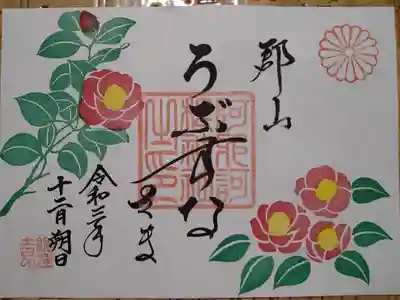 郡山
うぶすな
さま
令和三年
十二月朔日